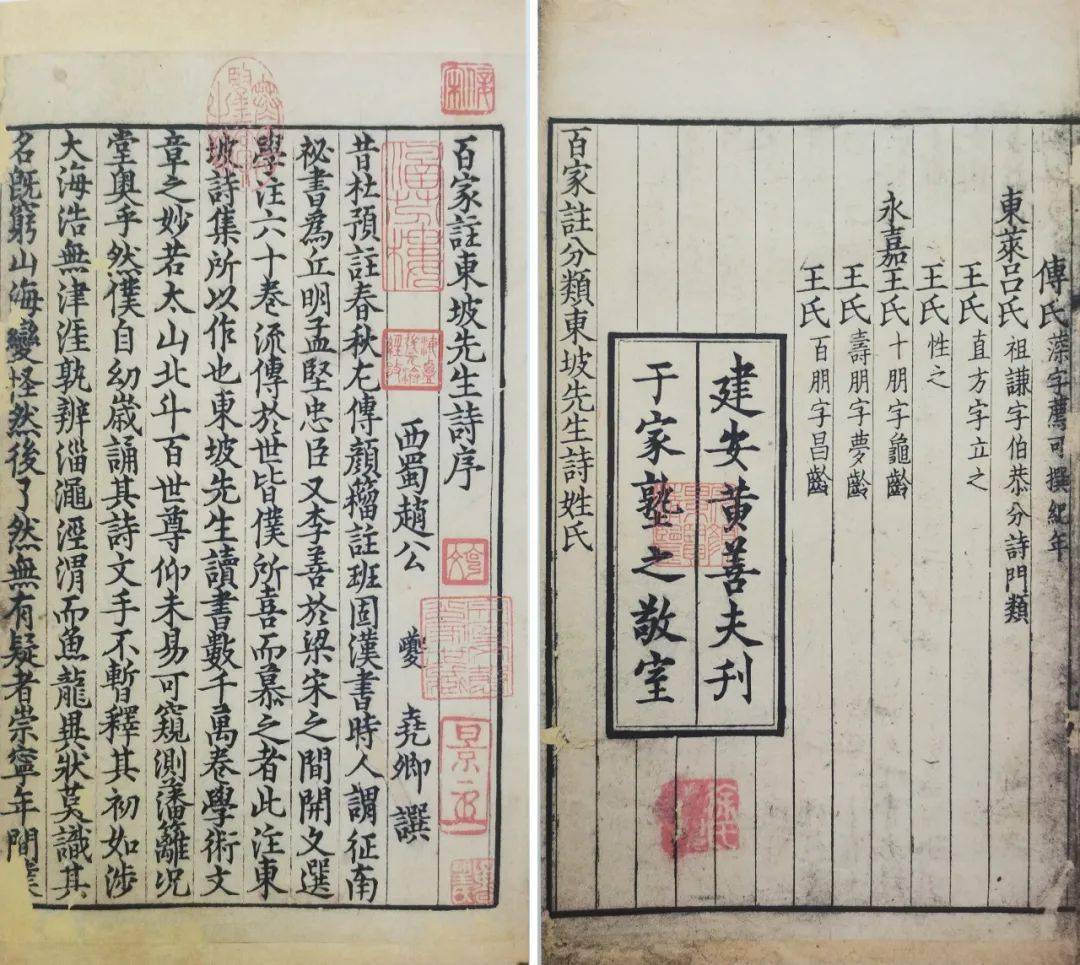 百家註東坡先生詩序
西蜀趙公 夔 堯卿 譔
昔杜預註春秋左傳顏籀註班固漢書時人謂征南
祕書為丘明孟堅忠臣又李善於梁宋之間開文選
學注六十卷流傳於世皆僕所喜而慕之者此注東
坡詩集所以作也東坡先生讀書數千萬卷學術文
章之妙若太山北斗百世尊仰未易可窺測藩籬況
堂奧乎然僕自幼歲誦其詩文手不暫釋其初如涉
大海浩無津涯孰辨淄澠涇渭而魚龍異狀莫識其
名旣窮山海變怪然後了然無有疑者崇寧年間僕
涵芬樓
景
傅氏藻字薦可撰紀年
東萊呂氏祖謙字伯恭分詩門類
王氏直方字立之
王氏性之
永嘉王氏十朋字龜齡
王氏壽朋字夢齡
王氏百朋字昌齡
建安黃善夫刊
于家塾之敬室
百家註分類東坡先生詩姓氏